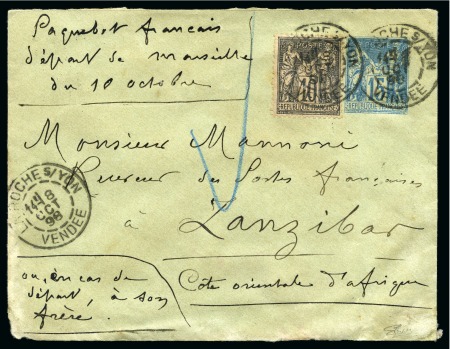 Paquebot français
départ de Marseille
du 10 octobre
POSTE
10
15
REPUBLIQUE FRANÇAISE
ROCHE S/YON
Monsieur Mannoni
Receveur des Postes françaises
à Zanzibar
Côte orientale d'Afrique
ROCHE S/YON
8
OCT
98
VENDÉE
ou, en cas de
départ, à son
frère.